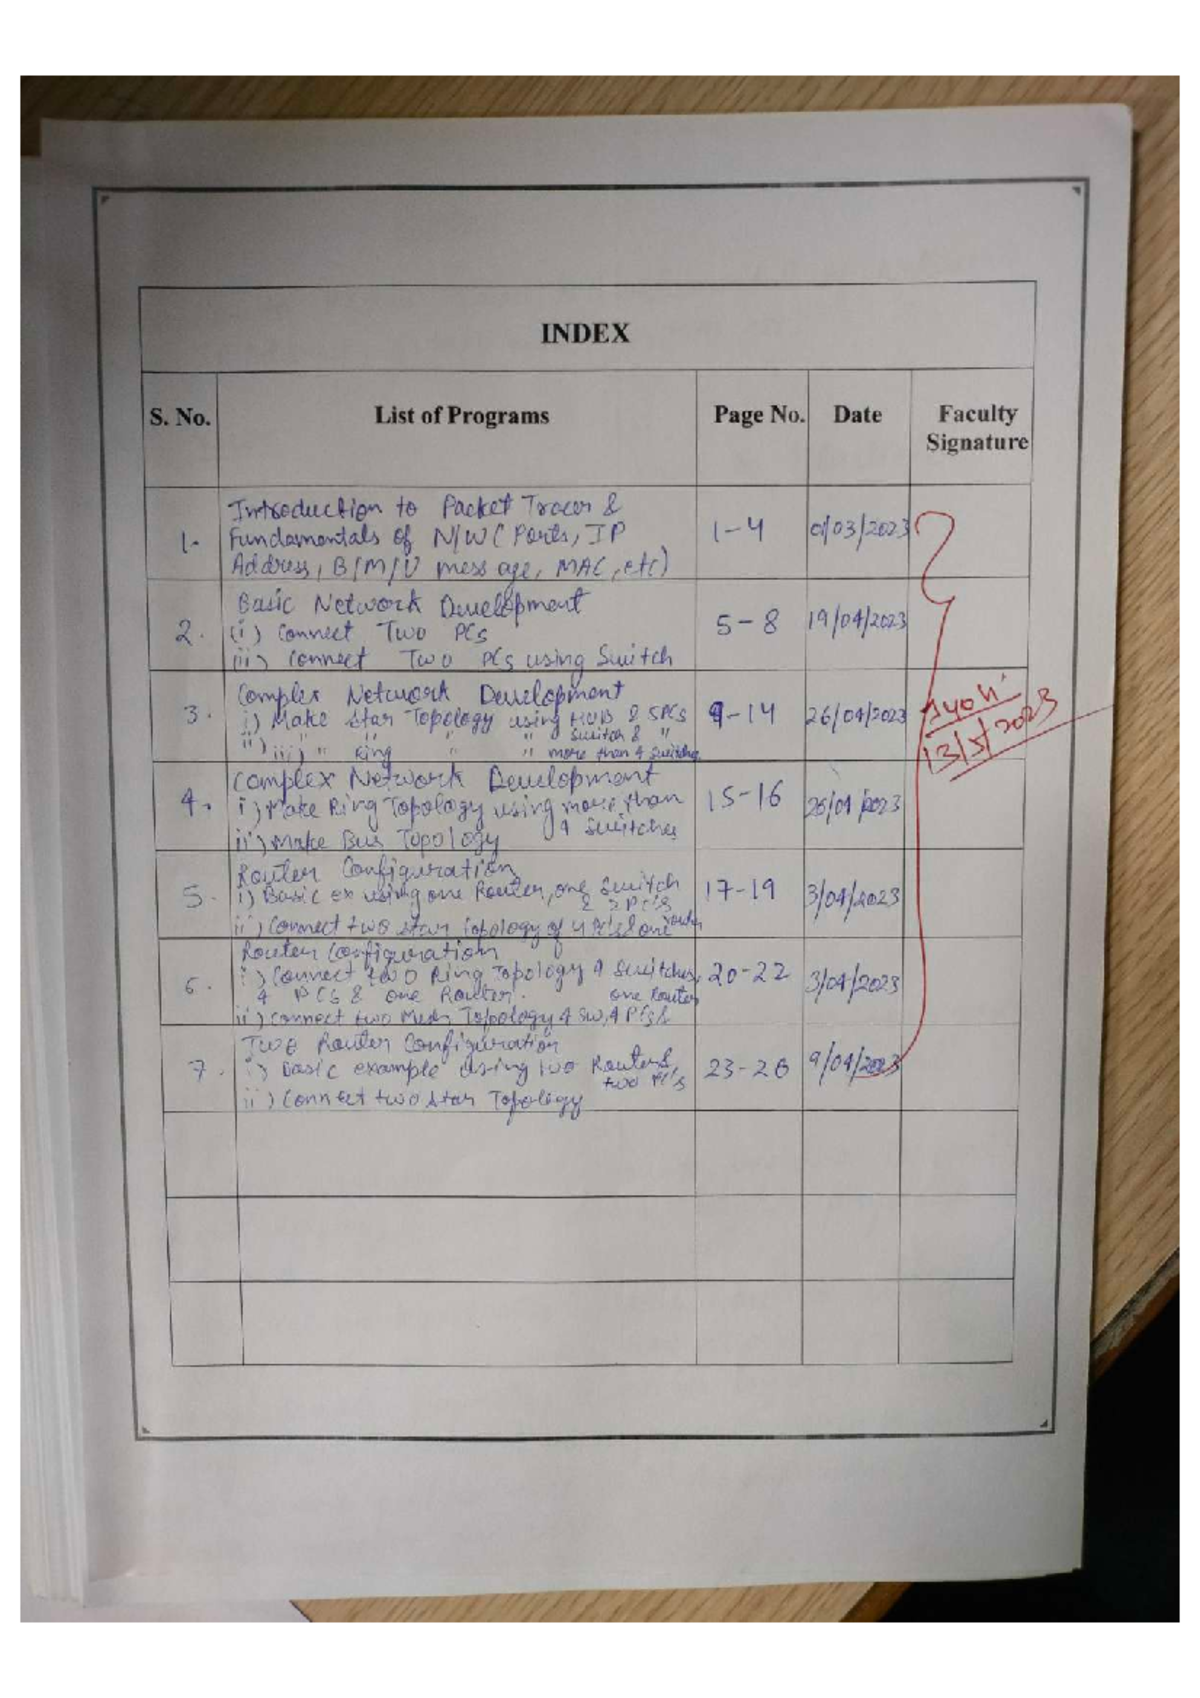 INDEX
S. No. List of Programs Page No. Date Faculty Signature
Introduction to Packet Tracer &
1. Fundamentals of N/W ( Ports, IP 1-4 01/03/2023
Address, B/M/U message, MAC, etc)
Basic Network Development
2. (i) Connect Two PCs 5-8 19/04/2023
iii) Connect Two PCs using Switch
Complex Network Development
3. i) Make Star Topology using HUB & 5PCs 9-14 26/04/2023
ii) " " " Switch & "
iii) " Ring " " more than 4 Switches
Complex Network Development
4. i) Make Ring Topology using more than 15-16 26/04/2023
4 Switches
ii) Make Bus Topology
Router Configuration
5. i) Basic ex using one Router, one Switch 17-19 3/04/2023
& 2 PCs
ii) Connect two star Topology of 4 PCs & one router
Router Configuration
6. i) Connect two Ring Topology 4 Switches, 20-22 3/04/2023
4 PCs & one Router.
ii) Connect two Mesh Topology 4 SW, 4 PCs & one Router
Two Router Configuration
7. i) Basic example using two Routers, 23-26 9/04/2023
two PCs
ii) Connect two star Topology
Jyoti
13/5/2023